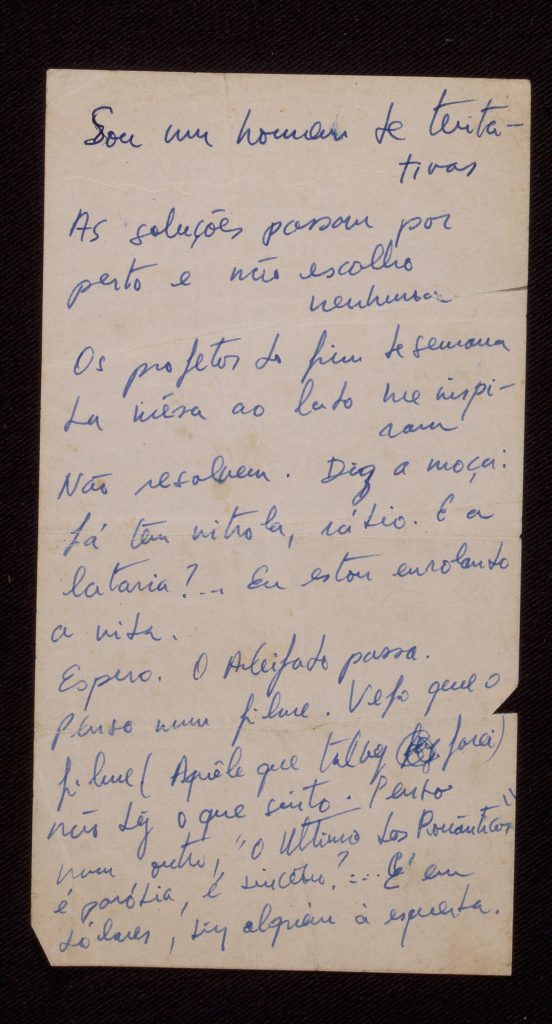 Sou um homem de tenta-
tivas
As soluções passam por
perto e não escolho
nenhuma
Os projetos do fim de semana
da mésa ao lado me inspi-
ram
Não resolvem. Diz a moça:
Lá tem vitrola, rádio. E a
lataria?... Eu estou enrolando
a vida.
Espero. O Aleijado passa.
Penso num filme. Vejo que o
filme (Aquêle que talvez farei)
não diz o que sinto. Penso
num outro, "O Ultimo dos Românticos"
é paródia, é sincero?... É em
dólares, diz alguém à esquerda.